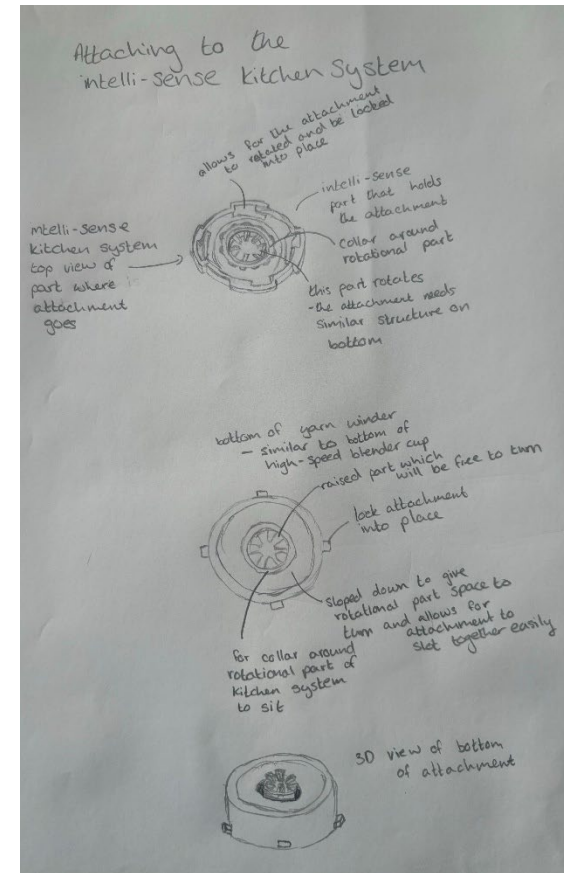 Attaching to the
intelli-sense kitchen System
allows for the attachment
to rotated and be locked
into place
intelli-sense
part that holds
the attachment
collar around
rotational part
intelli-sense
kitchen system
top view of
part where
attachment
goes
this part rotates
-the attachment needs
similar structure on
bottom
bottom of yarn winder
- similar to bottom of
high-speed blender cup
raised part which
will be free to turn
lock attachment
into place
sloped down to give
rotational part space to
turn and allows for
attachment to
slot together easily
for collar around
rotational part of
kitchen system
to sit
3D view of bottom
of attachment